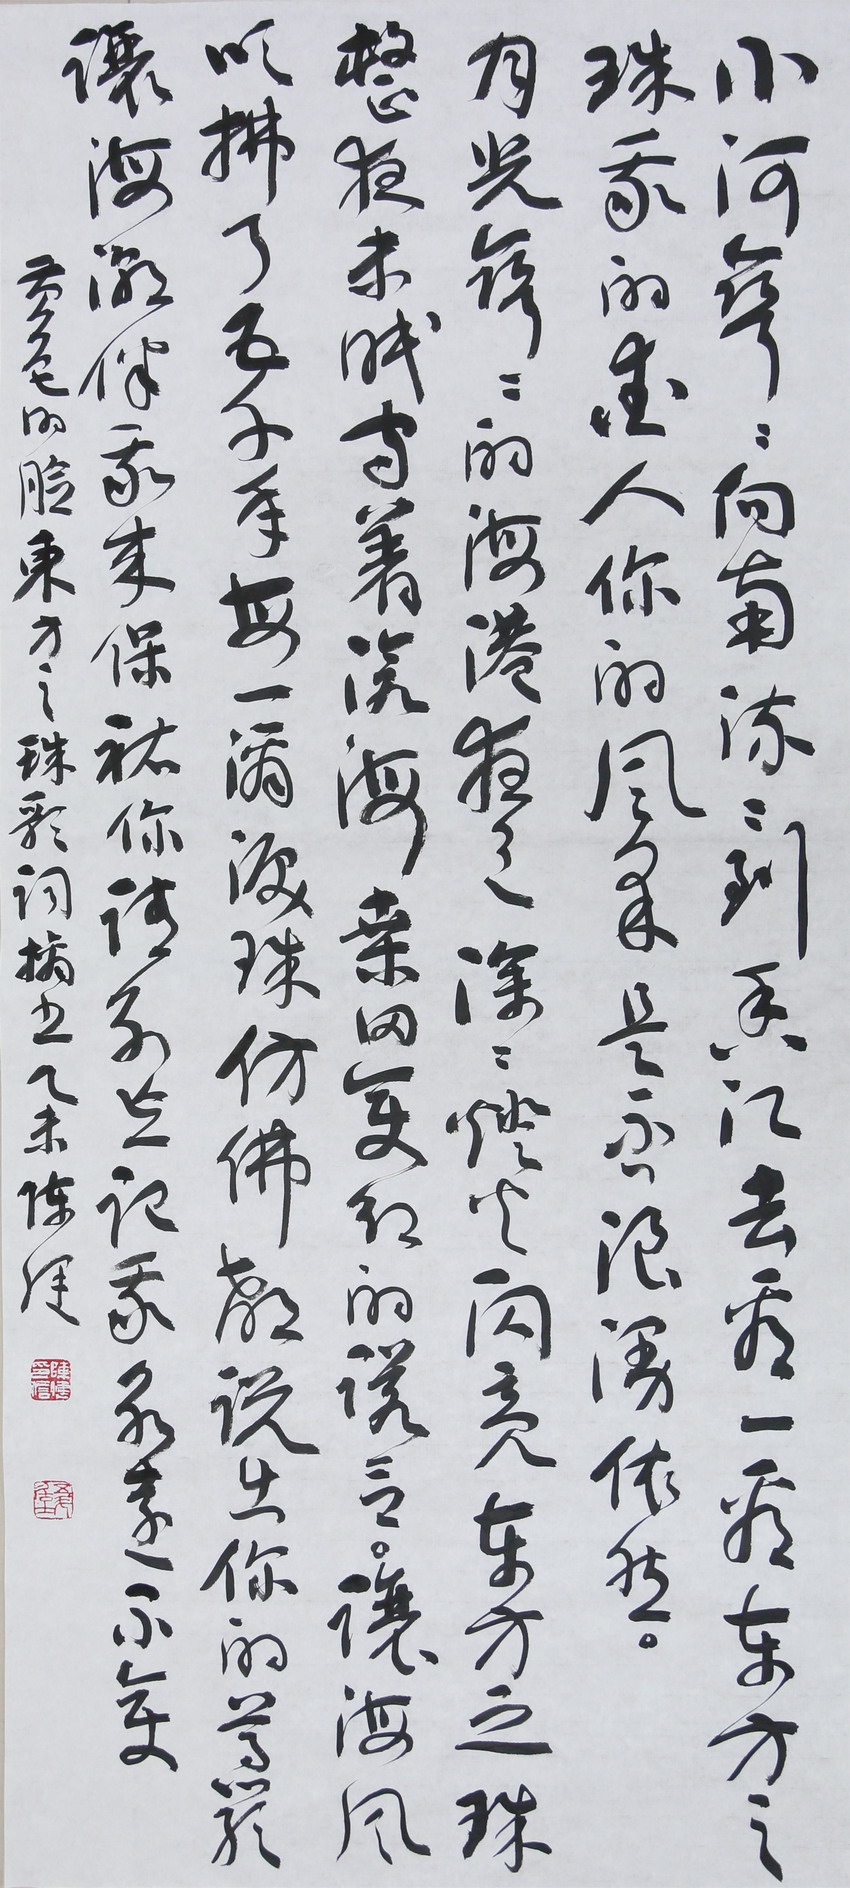 小河彎〻向南流〻到香江去看一看东方之
珠我的爱人你的风采是否浪漫依然。
月光彎〻的海港夜色深〻燈火闪亮东方之珠
整夜未眠守着沧海桑田变幻的诺言。讓海风
吹拂了五千年每一滴淚珠仿佛都说出你的尊嚴
讓海潮伴我来保祐你请别忘记我永远不变
黄色的脸東方之珠歌词摘书乙未陈健